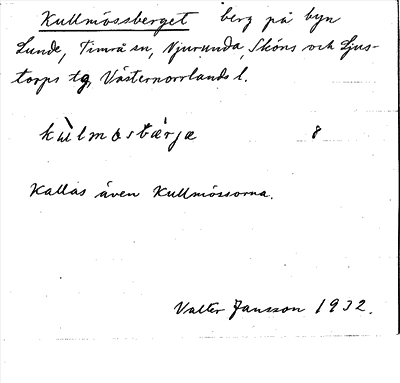 Kullmössberget berg på byn
Lunde, Timrå sn, Njurunda, Sköns och Ljus-
torps tg, Västernorrlands l.
kùlmosbärja 8
Kallas även Kullmössorna.
Valter Jansson 1932.